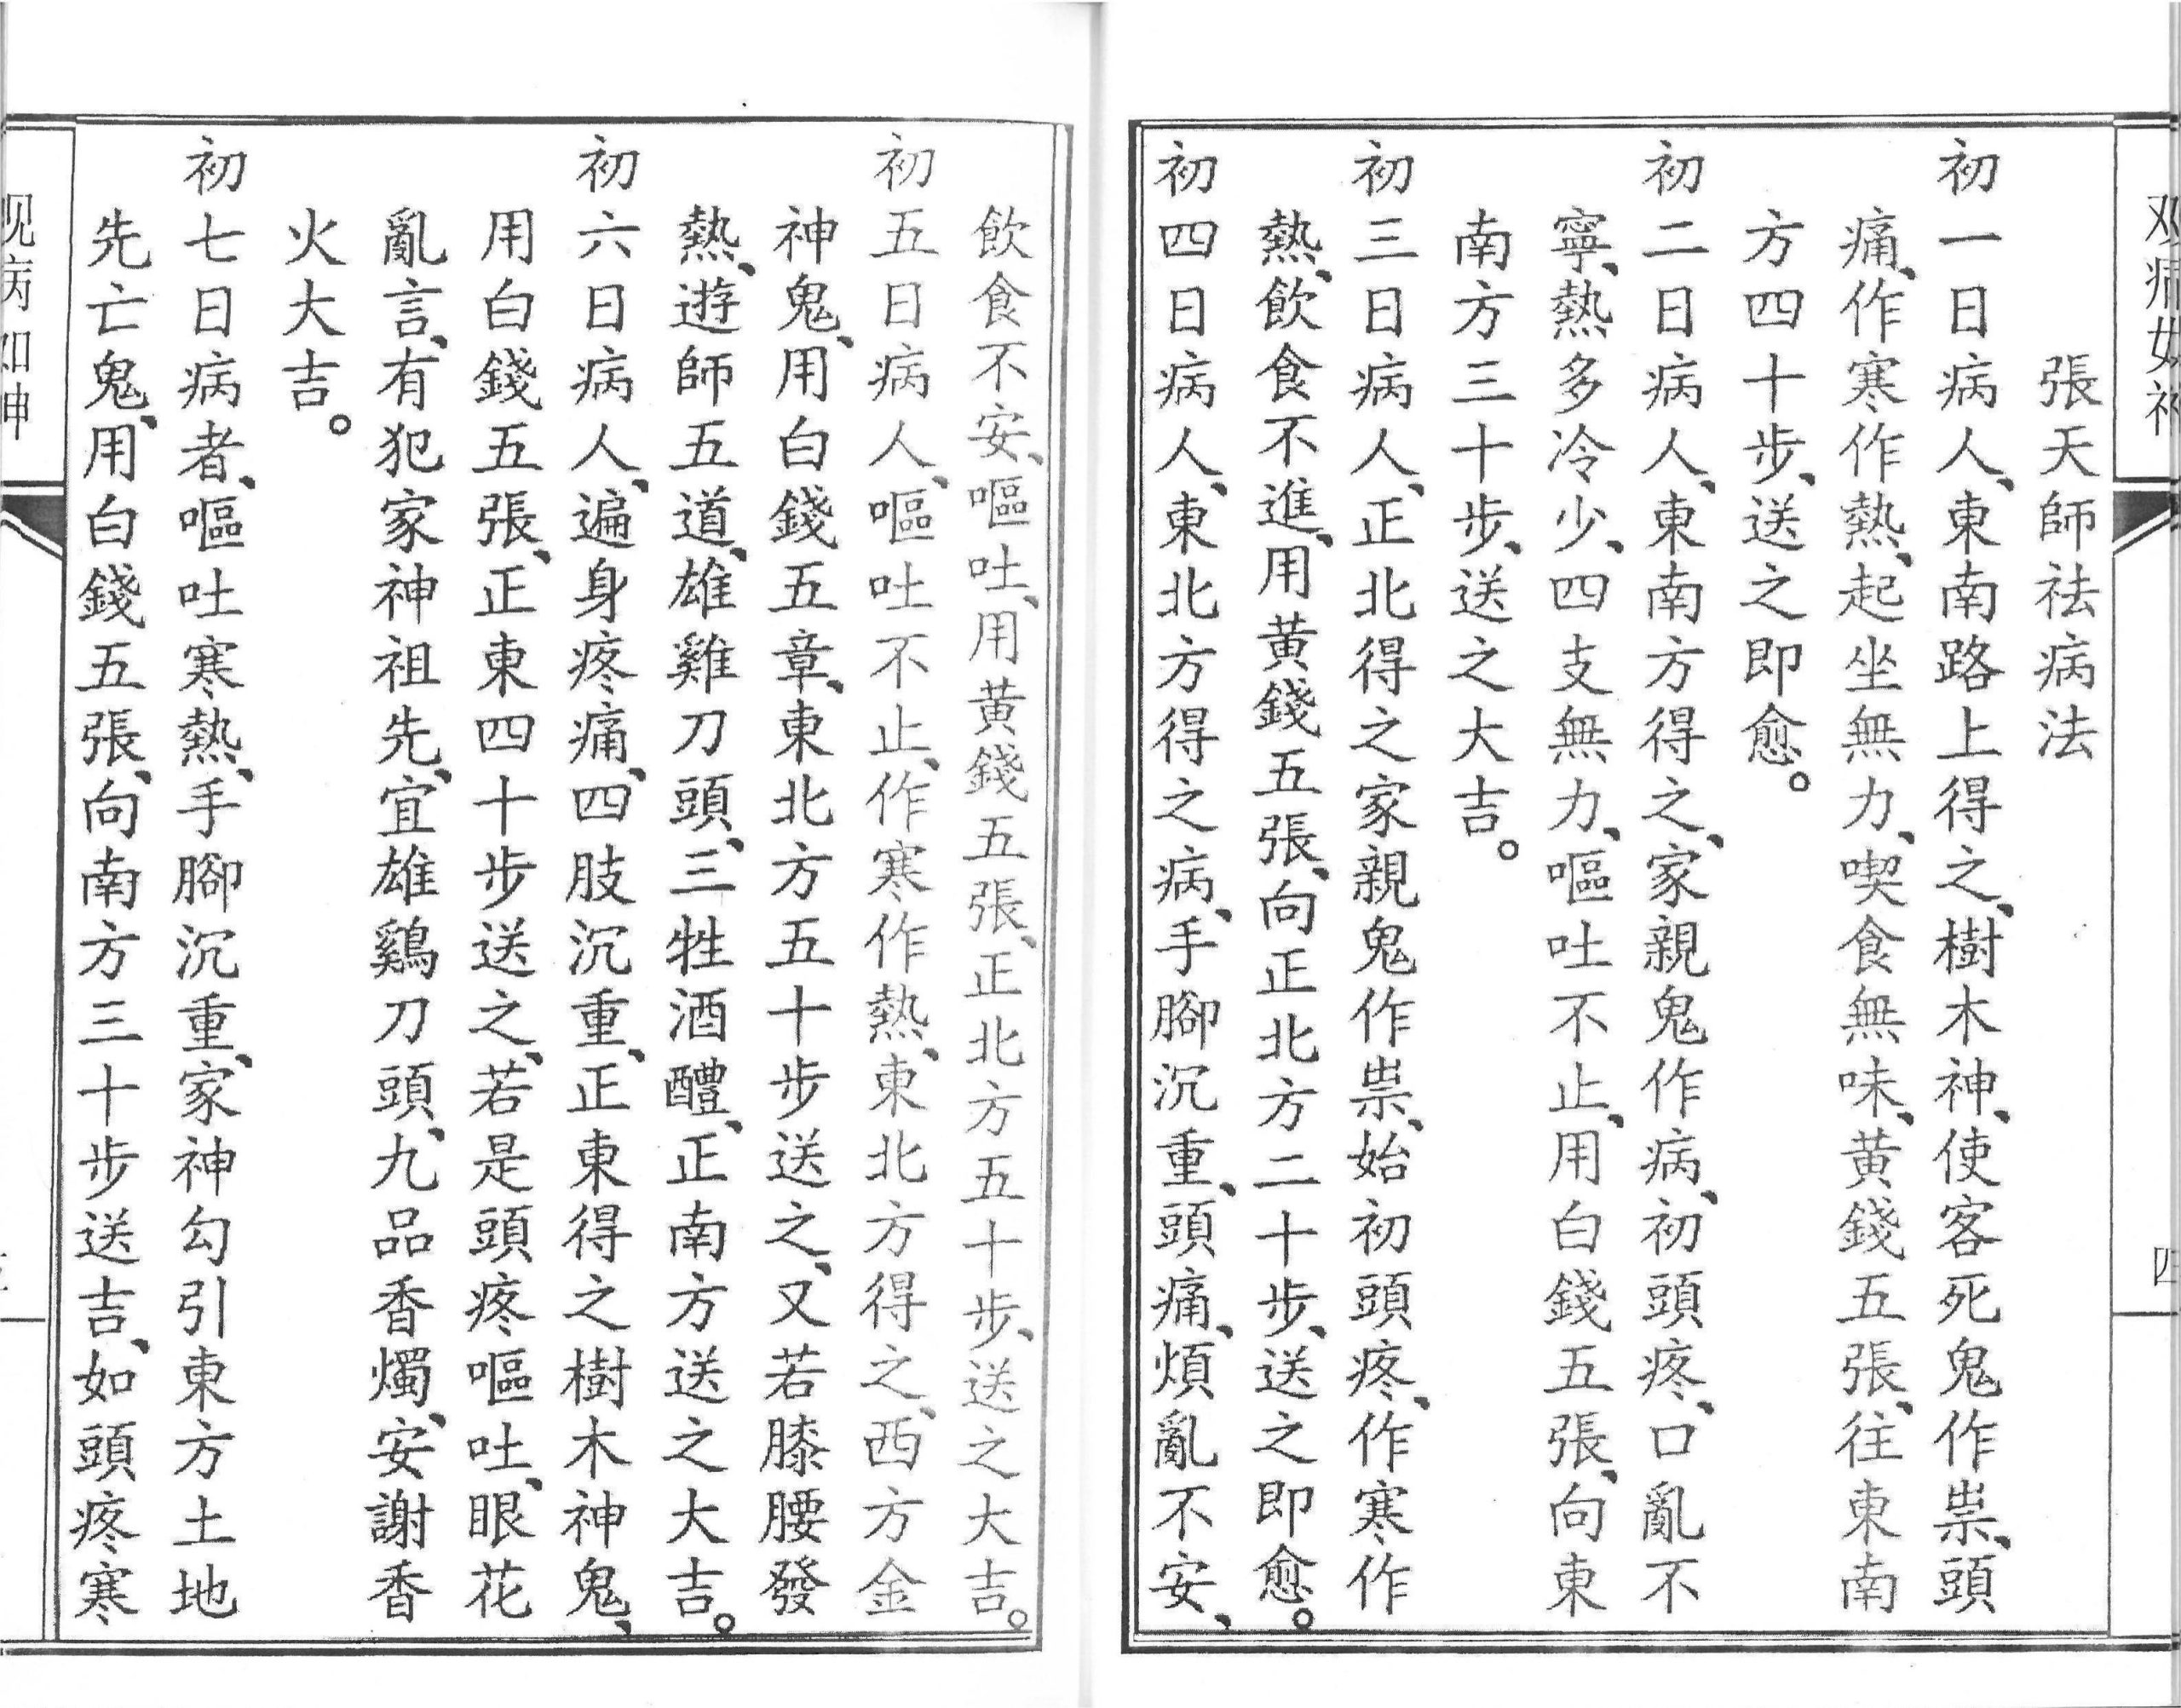 張天師祛病法
初一日病人、東南路上得之、樹木神、使客死鬼作祟、頭
痛、作寒作熱、起坐無力、喫食無味、黄錢五張、往東南
方四十步、送之即愈。
初二日病人、東南方得之、家親鬼作病、初頭疼、口亂不
寧、熱多冷少、四支無力、嘔吐不止、用白錢五張、向東
南方三十步、送之大吉。
初三日病人、正北得之家親鬼作祟、始初頭疼、作寒作
熱、飲食不進、用黄錢五張、向正北方二十步、送之即愈。
初四日病人、東北方得之病、手腳沉重、頭痛、煩亂不安、
飲食不安、嘔吐、用黄錢五張、正北方五十步、送之大吉。
初五日病人、嘔吐不止、作寒作熱、東北方得之、西方金
神鬼、用白錢五章、東北方五十步送之、又若膝腰發
熱、遊師五道、雄雞刀頭、三牲酒醴、正南方送之大吉。
初六日病人、遍身疼痛、四肢沉重、正東得之樹木神鬼、
用白錢五張、正東四十步送之、若是頭疼嘔吐、眼花
亂言、有犯家神祖先、宜雄鷄刀頭、九品香燭、安謝香
火大吉。
初七日病者、嘔吐寒熱、手腳沉重、家神勾引東方土地
先亡鬼、用白錢五張、向南方三十步送吉、如頭疼寒
观病如神